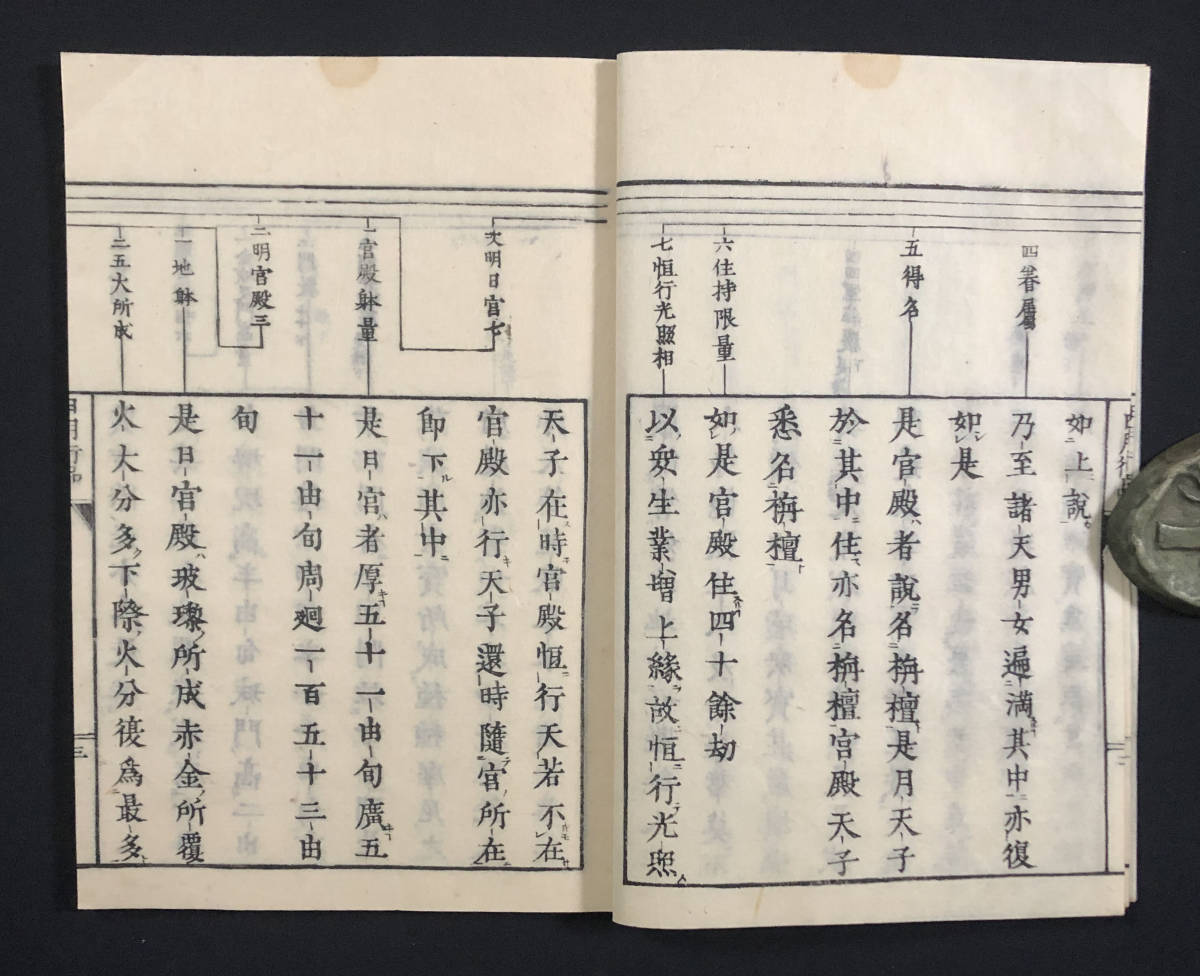 四眷屬
五得名
六住持限量
七恒行光照相
如上說
乃至諸天男女遍滿其中亦復
如是
是宮殿者說名栴檀是月天子
於其中住亦名栴檀宮殿天子
悉名栴檀
如是宮殿住四十餘劫
以衆生業增上緣故恒行光照
次明日宮七
一宮殿躰量
二明宮殿三
一地躰
二五大所成
天子在時宮殿恒行天若不在
宮殿亦行天子還時隨宮所在
即下其中
是日宮者厚五十一由旬廣五
十一由旬周廻一百五十三由
旬
是日宮殿玻瓈所成赤金所覆
火大分多下際火分復爲最多
三